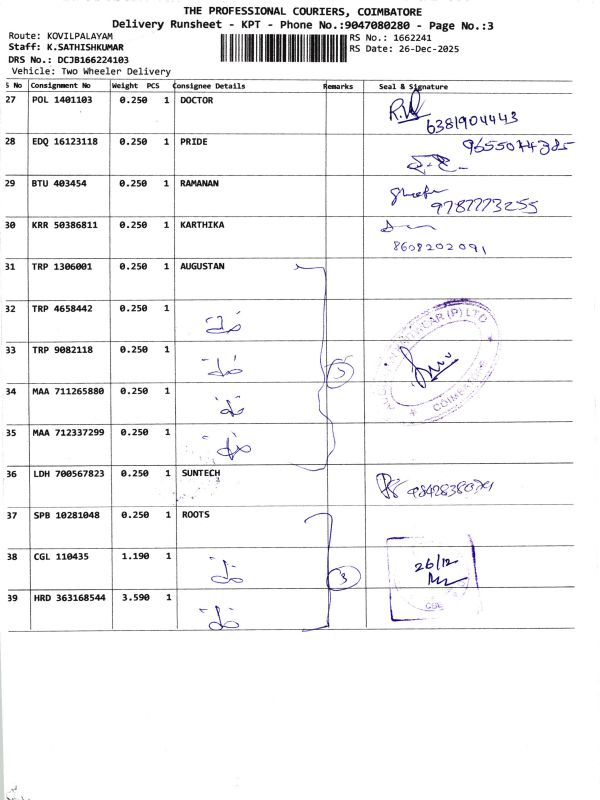 THE PROFESSIONAL COURIERS, COIMBATORE
Delivery Runsheet - KPT - Phone No.:9047080280 - Page No.:3
Route: KOVILPALAYAM
Staff: K.SATHISHKUMAR
DRS No.: DCJB166224103
Vehicle: Two Wheeler Delivery
RS No.: 1662241
RS Date: 26-Dec-2025
S No Consignment No Weight PCS Consignee Details Remarks Seal & Signature
27 POL 1401103 0.250 1 DOCTOR
6381904443
28 EDQ 16123118 0.250 1 PRIDE
29 BTU 403454 0.250 1 RAMANAN
9787773255
30 KRR 50386811 0.250 1 KARTHIKA
8608202091
31 TRP 1306001 0.250 1 AUGUSTAN
32 TRP 4658442 0.250 1
33 TRP 9082118 0.250 1
5
34 MAA 711265880 0.250 1
35 MAA 712337299 0.250 1
36 LDH 700567823 0.250 1 SUNTECH
37 SPB 10281048 0.250 1 ROOTS
38 CGL 110435 1.190 1
3
26/12
39 HRD 363168544 3.590 1